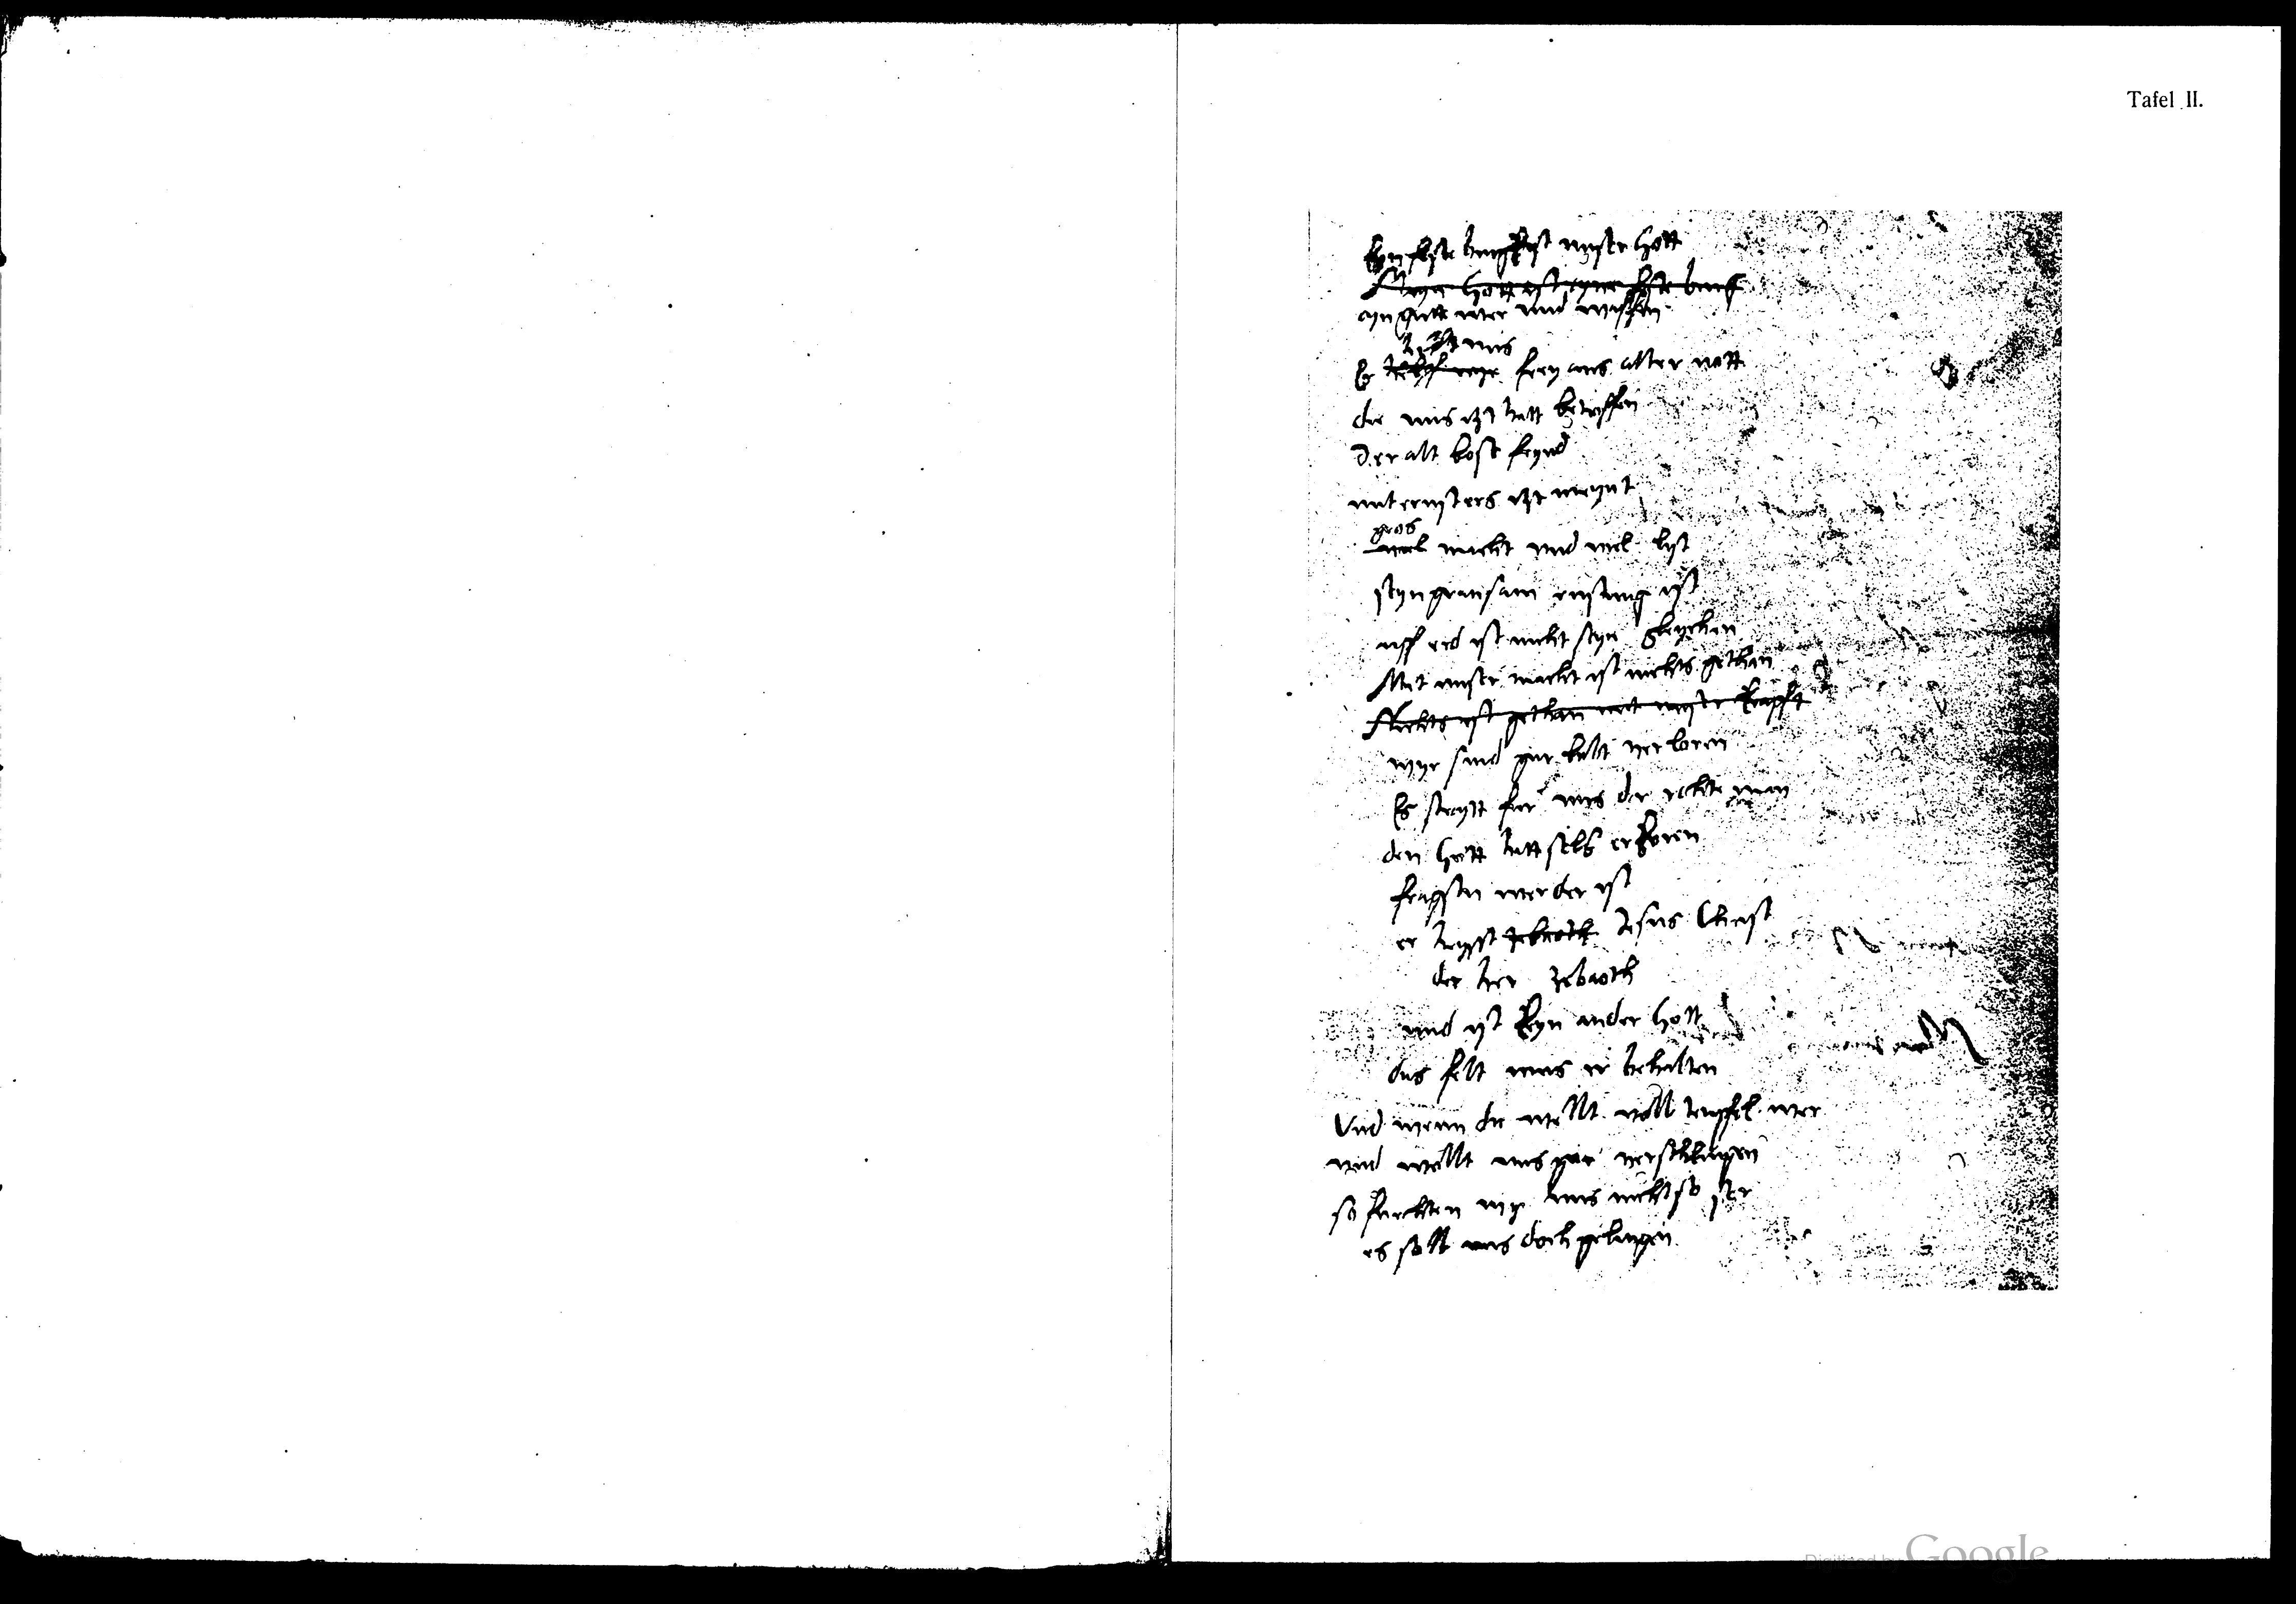 Tafel II.
Eyn feste burgk ist unser Gott
Meyn Gott ist eyne feste burck
eyn gutte wer und waffen
hilft uns
Er frey aus aller nott
die uns itzt hatt betroffen
Der alt bose feynd
mit ernst ers itzt meynt
gros
viel macht und viel lyst
seyn grausam rustung ist
uff erd ist nicht seyn gleychen
Mit unser macht ist nichts gethan
Nichts ist gethan mit unser krafft
wyr sind gar balt verloren
Es streytt fur uns der rechte man
den Gott hatt selbs erkoren
fragstu wer der ist
er heysst zebaoth Jesus Christ
der herr zebaoth
und ist keyn ander Gott
das felt mus er behalten
Und wenn die wellt voll teuffel wer
und wollt uns gar verschlingen
so furchten wyr uns nicht so ser
es soll uns doch gelingen
Digitized by Google